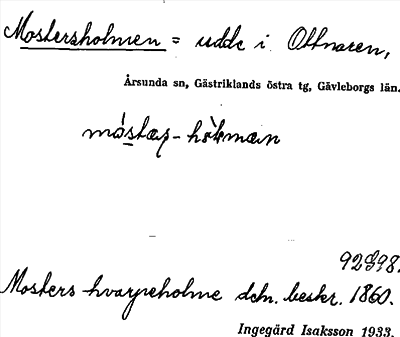 Mostersholmen = udde i Ottnaren,
Årsunda sn, Gästriklands östra tg, Gävleborgs län.
Mosters hvarpeholme dch. beskr. 1860.
Ingegärd Isaksson 1933.